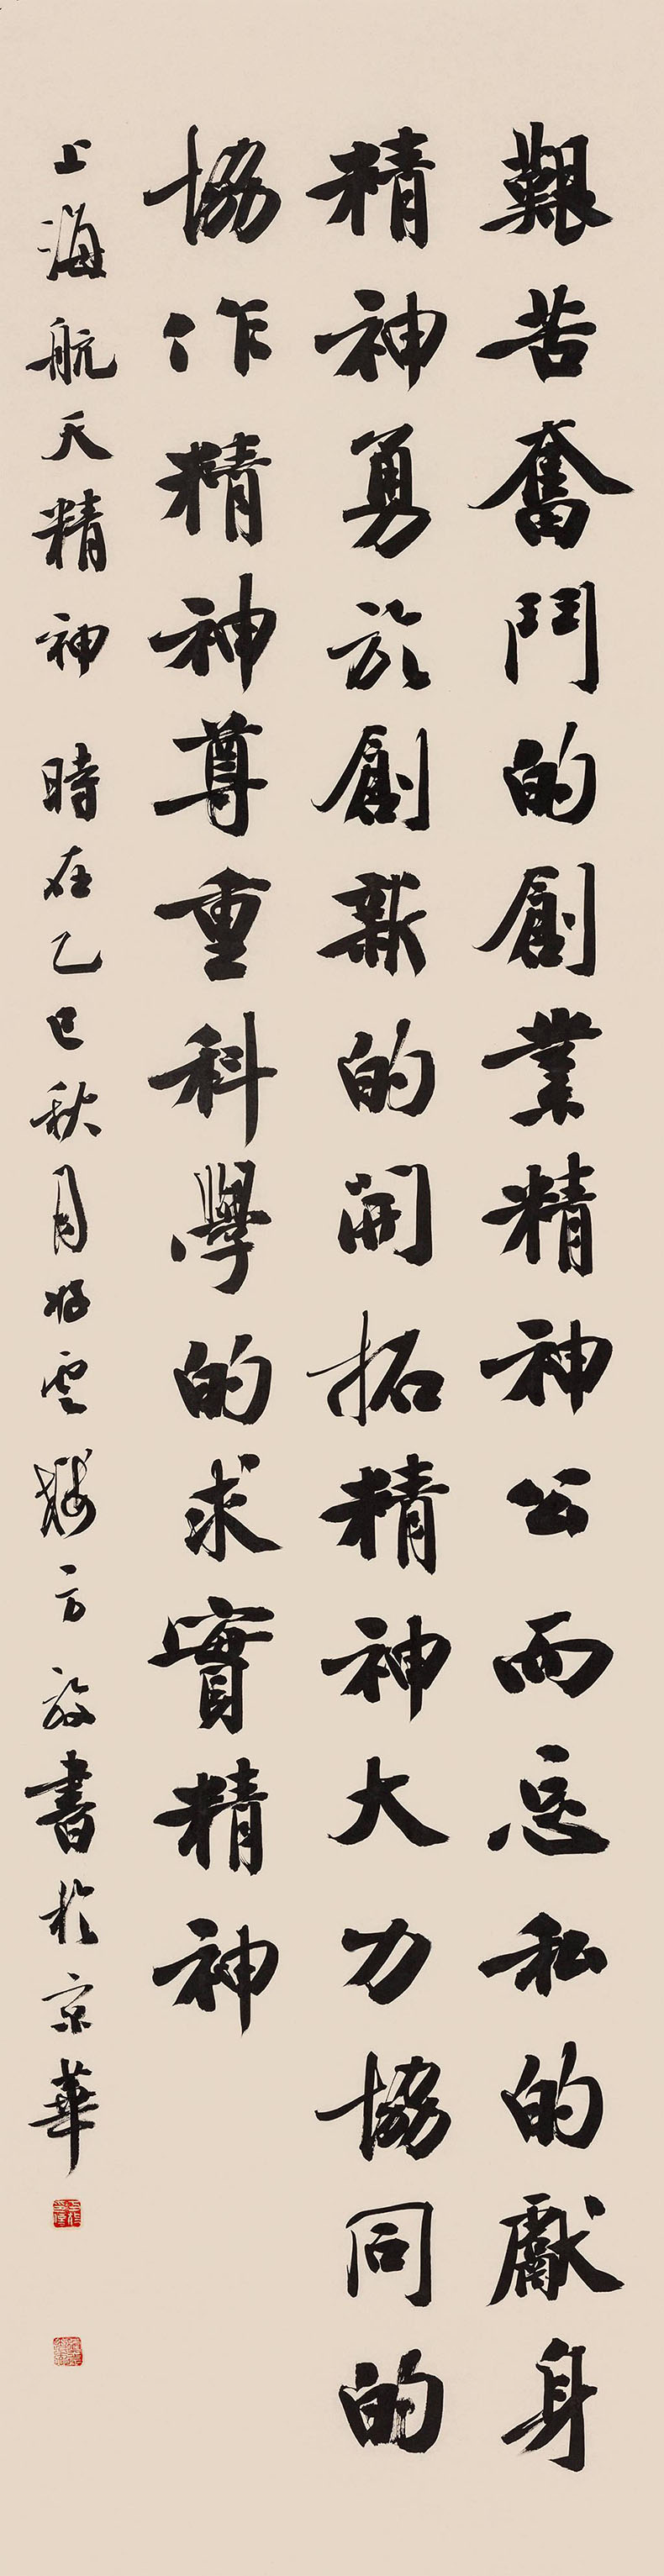 艱苦奮鬥的創業精神公而忘私的獻身
精神勇於創新的開拓精神大力協同的
協作精神尊重科學的求實精神
上海航天精神 時在乙巳秋月於雲 方放書於京華